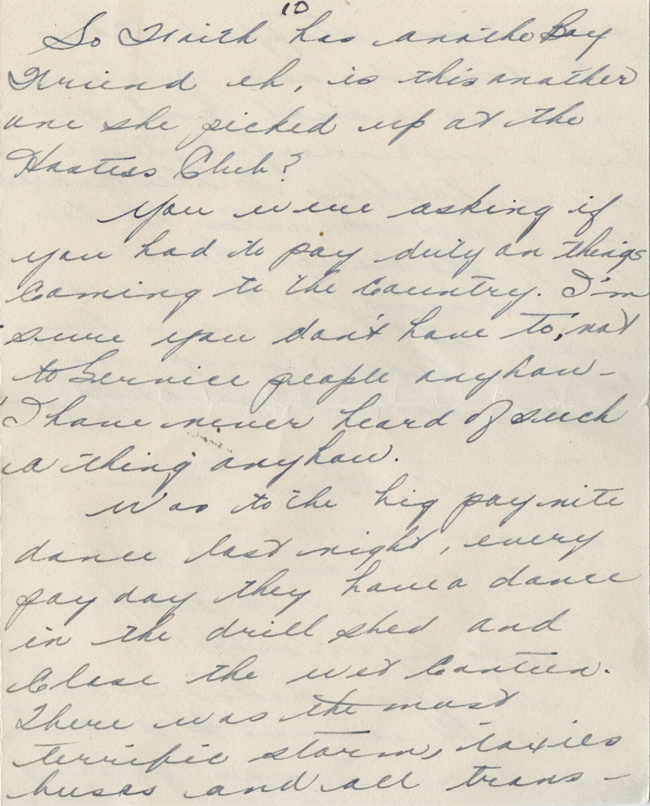 10
So Faith has anothe Boy
Friend eh, is this another
one she picked up at the
Hostess Club?
You were asking if
you had to pay duty on things
Coming to the Country. I'm
sure you don't have to, not
to Service people anyhow –
I have never heard of such
a thing anyhow.
Was to the big pay nite
dance last night, every
pay day they have a dance
in the drill shed and
Close the wet Canteen.
There was the most
terrific storm, taxies
buses and all trans –